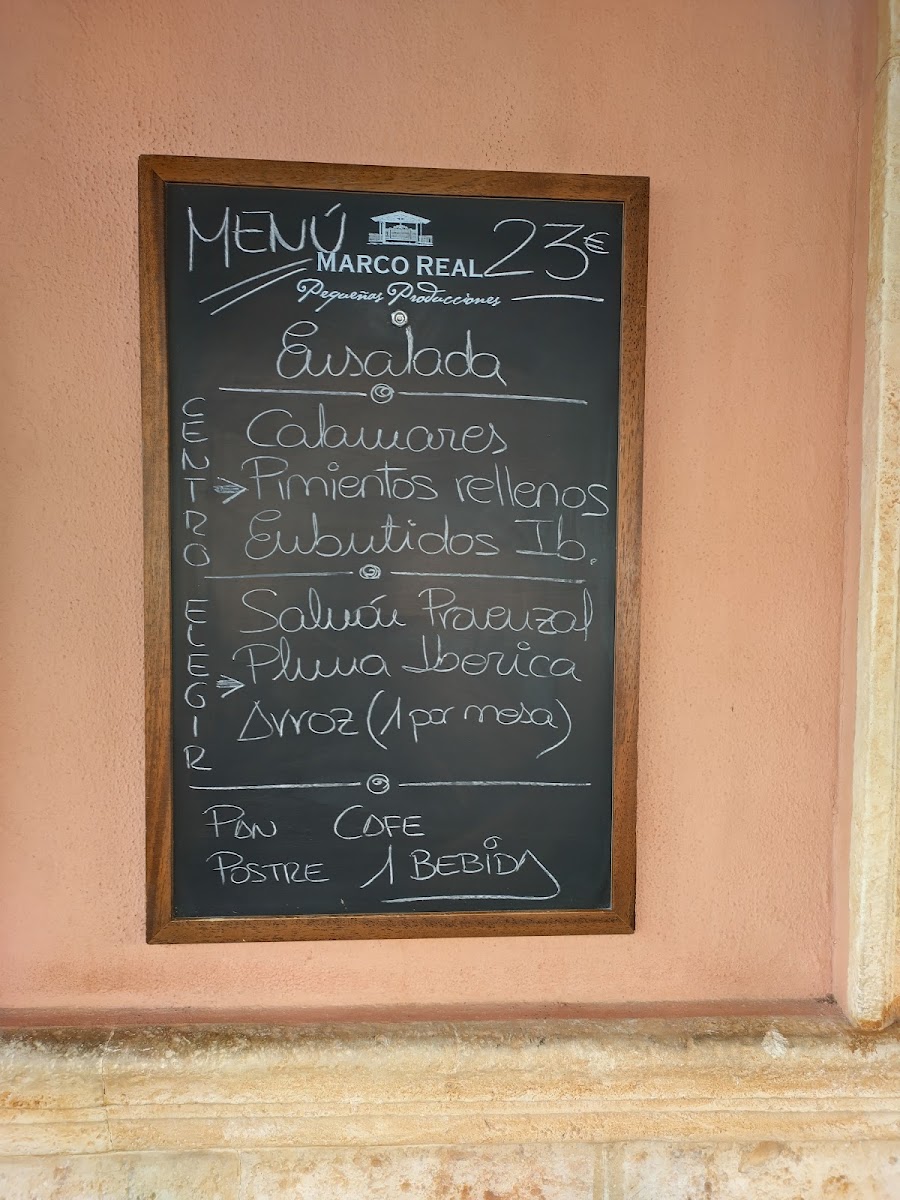 MENÚ 23€
MARCO REAL
Pequeñas Producciones
Ensalada
CENTRO
Calamares
Pimientos rellenos
Enbutidos Ib.
ELEGIR
Salmón Provenzal
Pluma Iberica
Arroz (1 por mesa)
PAN CAFE
POSTRE 1 BEBIDA